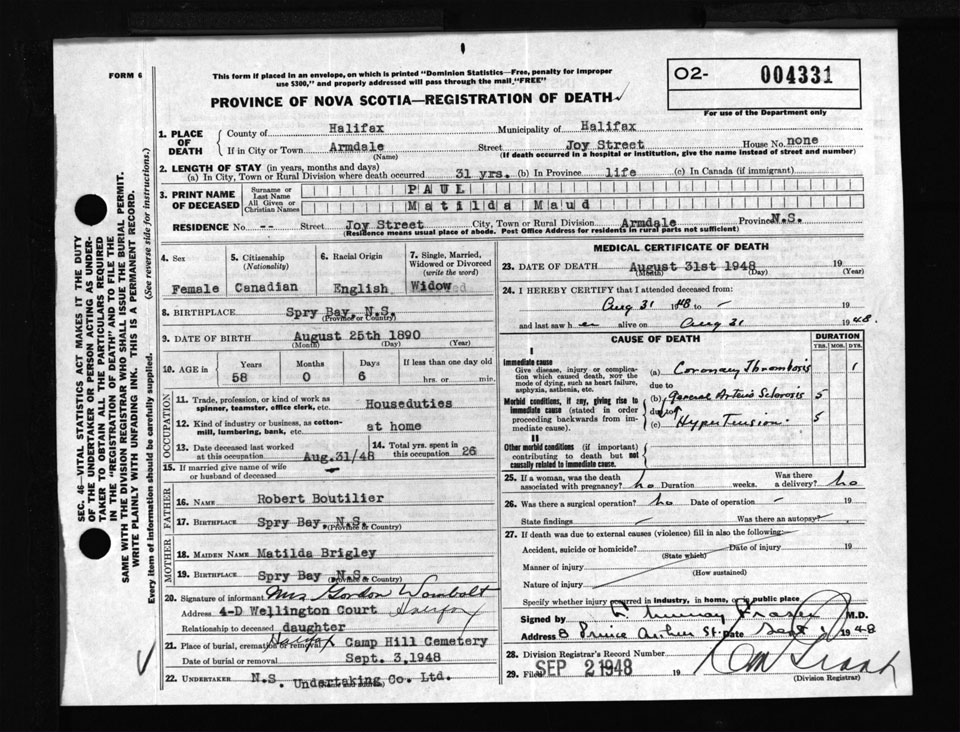 FORM 6
This form if placed in an envelope, on which is printed "Dominion Statistics—Free, penalty for improper
use $300," and properly addressed will pass through the mail "FREE"
PROVINCE OF NOVA SCOTIA—REGISTRATION OF DEATH
02- 004331
For use of the Department only
SEC. 46—VITAL STATISTICS ACT MAKES IT THE DUTY
OF THE UNDERTAKER OR PERSON ACTING AS UNDER-
TAKER TO OBTAIN ALL THE PARTICULARS REQUIRED
IN THE "REGISTRATION OF DEATH" AND TO FILE THE
SAME WITH THE DIVISION REGISTRAR WHO SHALL ISSUE THE BURIAL PERMIT.
WRITE PLAINLY WITH UNFADING INK. THIS IS A PERMANENT RECORD.
Every item of information should be carefully supplied. (See reverse side for instructions.)
1. PLACE OF DEATH
County of Halifax Municipality of Halifax
If in City or Town Armdale Street Joy Street House No. none
(Name) (If death occurred in a hospital or institution, give the name instead of street and number)
2. LENGTH OF STAY (in years, months and days)
(a) In City, Town or Rural Division where death occurred 31 yrs. (b) In Province life (c) In Canada (if immigrant)
3. PRINT NAME OF DECEASED
Surname or Last Name PAUL
All Given or Christian Names Matilda Maud
RESIDENCE No. -- Street Joy Street City, Town or Rural Division Armdale Province N.S.
(Residence means usual place of abode. Post Office Address for residents in rural parts not sufficient)
4. Sex
Female
5. Citizenship
(Nationality)
Canadian
6. Racial Origin
English
7. Single, Married,
Widowed or Divorced
(write the word)
Widow
8. BIRTHPLACE Spry Bay, N.S.
(Province or Country)
9. DATE OF BIRTH August 25th 1890
(Month) (Day) (Year)
10. AGE in Years Months Days If less than one day old
58 0 6 hrs. or min.
OCCUPATION
11. Trade, profession, or kind of work as
spinner, teamster, office clerk, etc. Houseduties
12. Kind of industry or business, as cotton-
mill, lumbering, bank, etc. at home
13. Date deceased last worked
at this occupation Aug.31/48
14. Total yrs. spent in
this occupation 26
15. If married give name of wife
or husband of deceased
FATHER
16. NAME Robert Boutilier
17. BIRTHPLACE Spry Bay, N.S.
(Province or Country)
MOTHER
18. MAIDEN NAME Matilda Brigley
19. BIRTHPLACE Spry Bay N.S.
(Province or Country)
20. Signature of informant Mrs Gordon Wambolt
Address 4-D Wellington Court Halifax
Relationship to deceased daughter
21. Place of burial, cremation or removal Halifax Camp Hill Cemetery
Date of burial or removal Sept. 3,1948
22. UNDERTAKER N.S. Undertaking Co. Ltd.
MEDICAL CERTIFICATE OF DEATH
23. DATE OF DEATH August 31st 1948
(Month) (Day) (Year)
24. I HEREBY CERTIFY that I attended deceased from:
Aug 31 1948 to - 19
and last saw her alive on Aug 31 1948.
CAUSE OF DEATH
DURATION
YRS. MOS. DYS.
I
Immediate cause
Give disease, injury or complica-
tion which caused death, NOT the
mode of dying, such as heart failure,
asphyxia, asthenia, etc.
(a) Coronary Thrombosis 1
due to
Morbid conditions, if any, giving rise to
immediate cause (stated in order
proceeding backwards from im-
mediate cause).
(b) General Arterio Sclerosis 5
due to
(c) HyperTension. 5
II
Other morbid conditions (if important)
contributing to death but not
causally related to immediate cause.
25. If a woman, was the death
associated with pregnancy? no Duration weeks. Was there
a delivery? no
26. Was there a surgical operation? no Date of operation - 19
State findings - Was there an autopsy? -
27. If death was due to external causes (violence) fill in also the following:
Accident, suicide or homicide? Date of injury 19
(State which)
Manner of injury
(How sustained)
Nature of injury
Specify whether injury occurred in industry, in home, or in public place
Signed by Murray Fraser M.D.
Address 8 Prince Arthur St. Date Sept 1 1948
28. Division Registrar's Record Number
29. Filed SEP 2 1948 19
(Division Registrar)